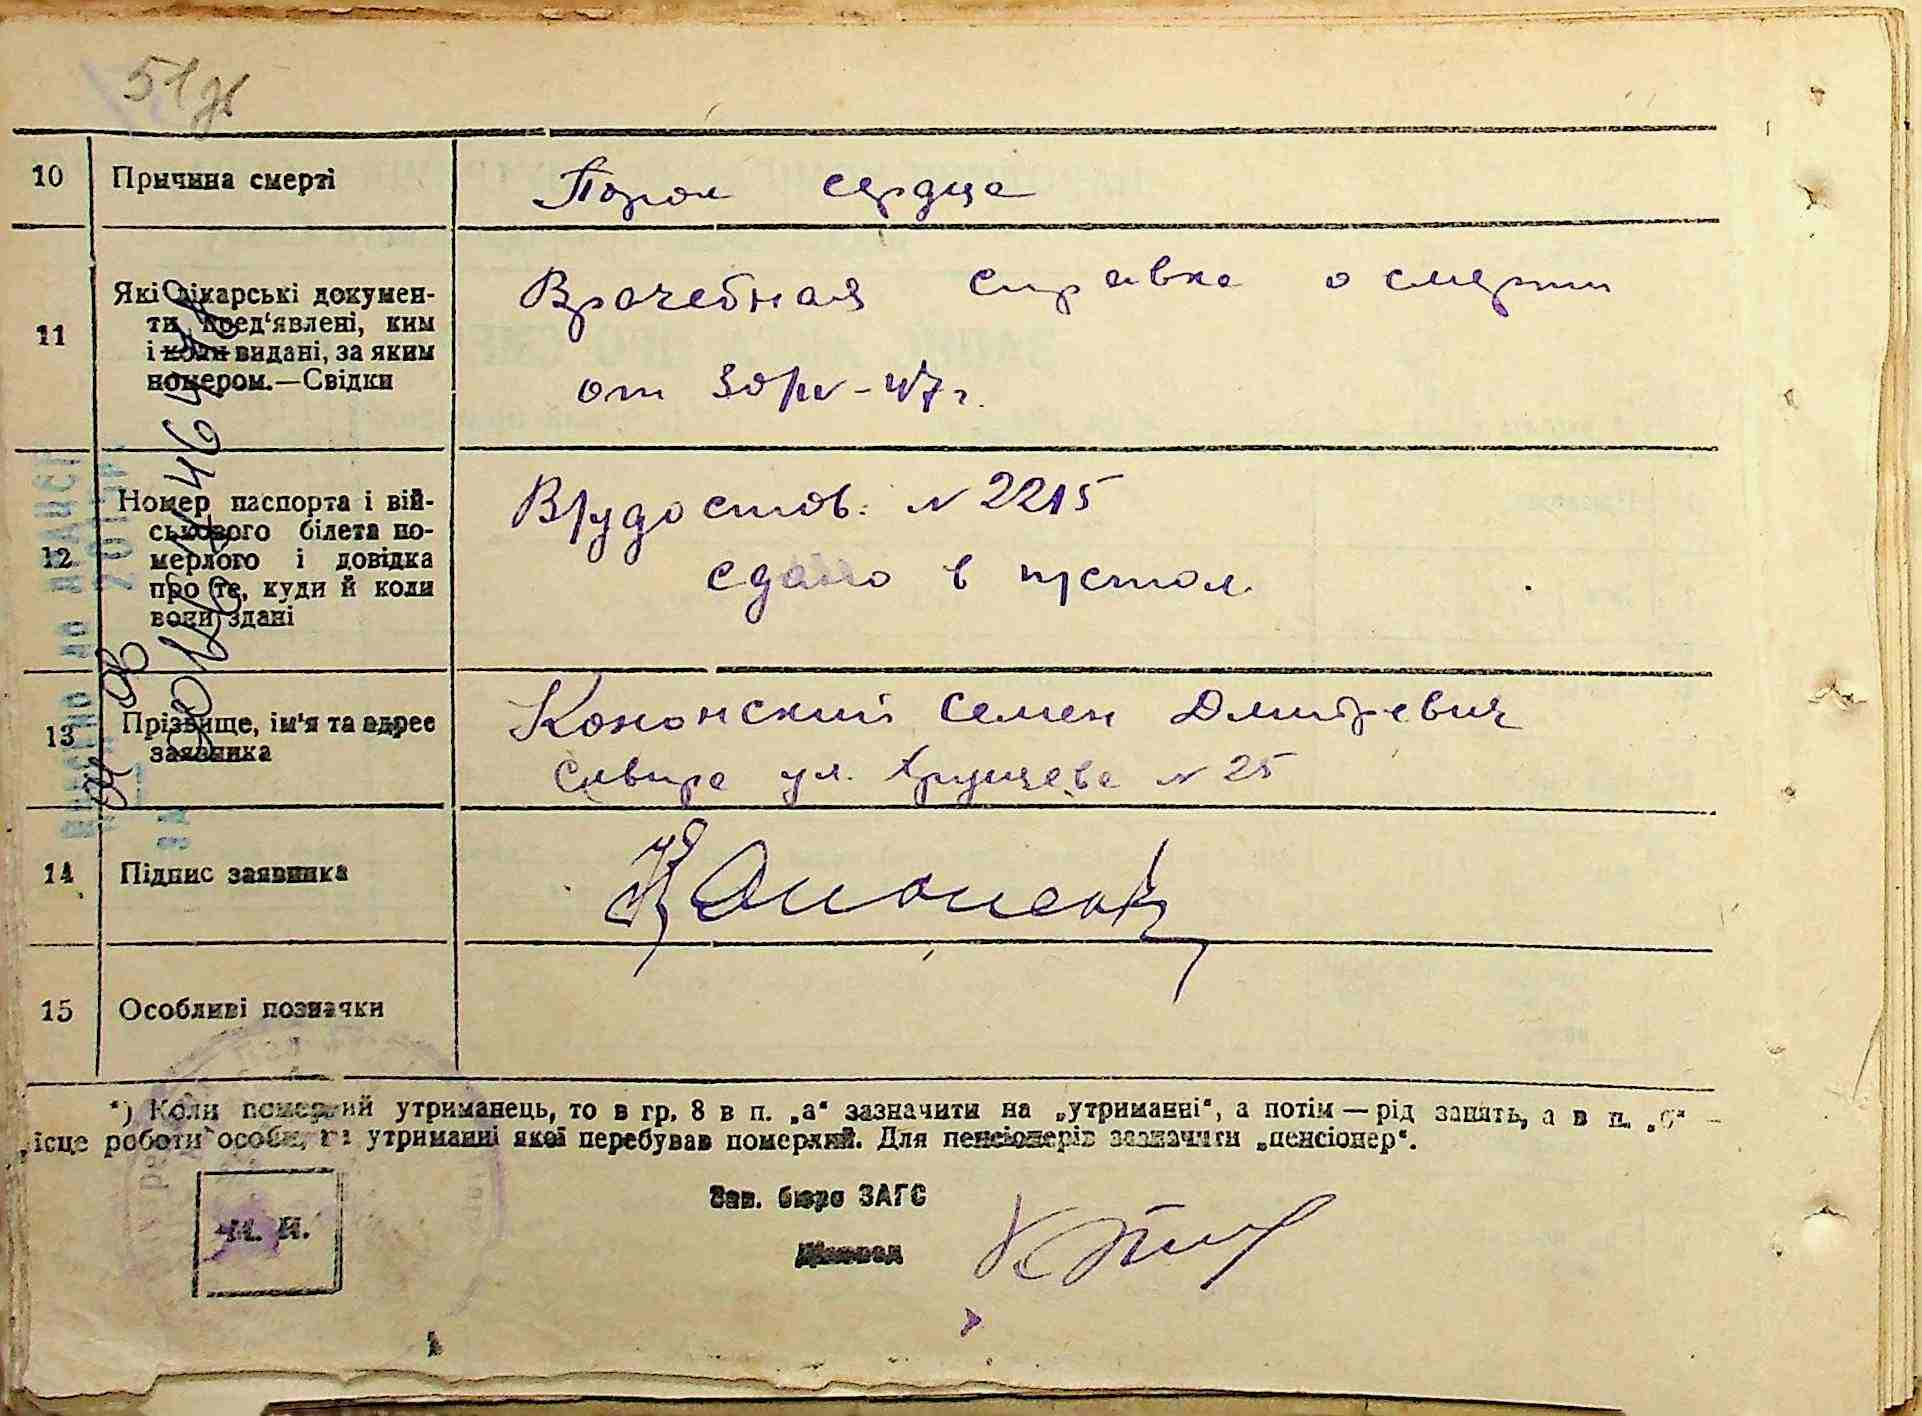 51
10 Причина смерті
Порок сердца
11 Які лікарські докумен-
ти пред'явлені, ким
і коли видані, за яким
номером.—Свідки
Врачебная справка о смерти
от 30/IV-47 г.
12 Номер паспорта і вій-
ськового білета по-
мерлого і довідка
про те, куди й коли
вони здані
Вр/удостов. № 2215
сдано в п/стол
13 Прізвище, ім'я та адрес
заявника
Кононский Семен Дмитревич
Сквира ул. Хрущева № 25
14 Підпис заявника
15 Особливі позначки
*) Коли померлий утриманець, то в гр. 8 в п. „а“ зазначити на „утриманні“, а потім — рід занять, а в п. „б“ —
місце роботи особи, на утриманні якої перебував померлий. Для пенсіонерів зазначити „пенсіонер“.
Зав. бюро ЗАГС
М. П.